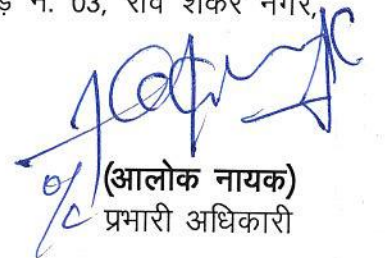 नं. 03, रवि शंकर नगर,
o/c (आलोक नायक)
प्रभारी अधिकारी